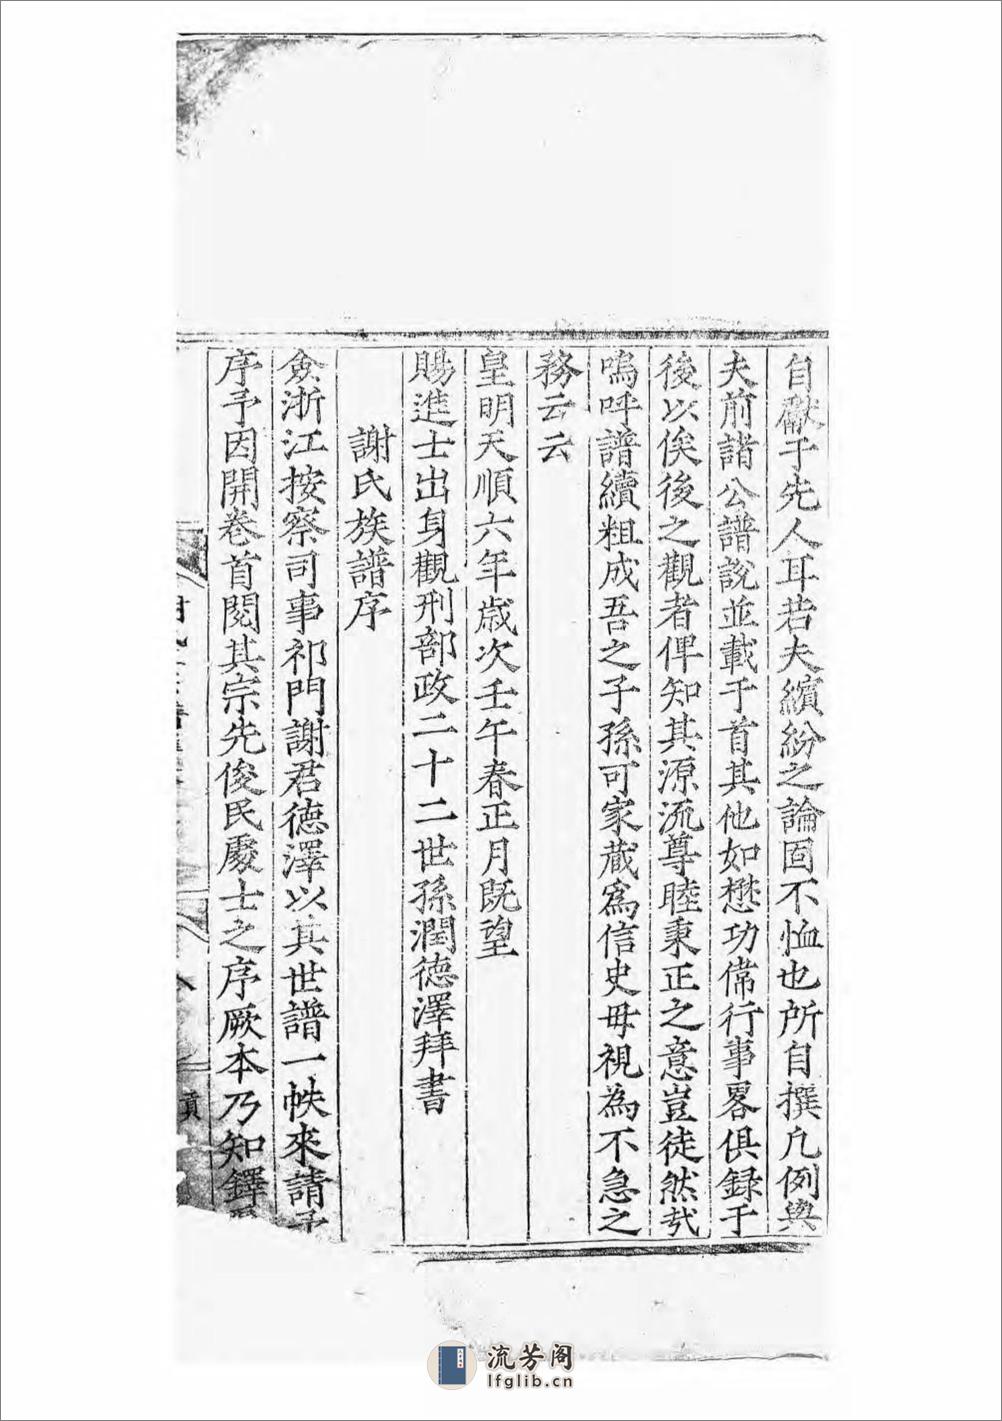 自獻于先人耳若夫繽紛之論固不恤也所自撰凡例與
夫前諸公譜說並載于首其他如懋功偉行事畧俱録于
後以俟後之觀者俾知其源流尊睦秉正之意豈徒然哉
嗚呼譜續粗成吾之子孫可家藏爲信史毋視為不急之
務云云
皇明天順六年歳次壬午春正月既望
賜進士出身觀刑部政二十二世孫潤德澤拜書
謝氏族譜序
僉浙江按察司事祁門謝君德澤以其世譜一帙來請予
序予因開卷首閱其宗先俊民處士之序厥本乃知鐸
流芳阁
lfglib.cn